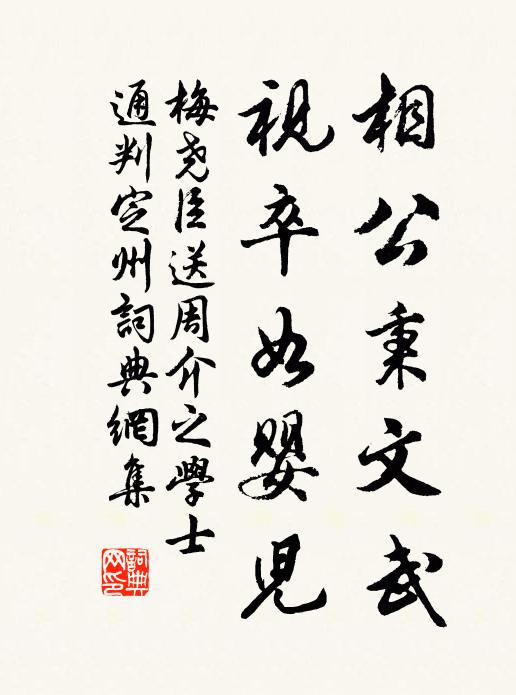 相公秉文武
視卒如嬰児
梅尧臣送周介之學士
通判定州詞典網集
詞典网印